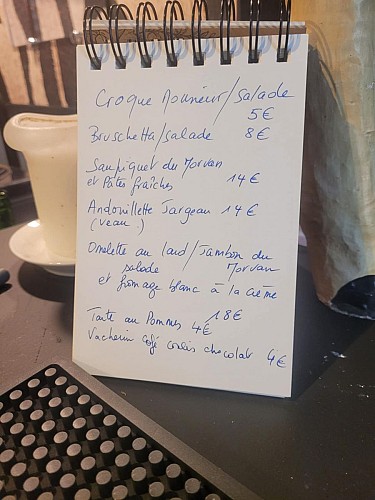 Croque Monsieur/Salade
5€
Bruschetta/salade 8€
Saupiquet du Morvan
et Pâtes fraîches 14€
Andouillette Jargeau 14€
(veau.)
Omelette au lard/Jambon du
salade Morvan
et fromage blanc à la crème
18€
Tarte au Pommes 4€
Vacherin Café coulis chocolat 4€